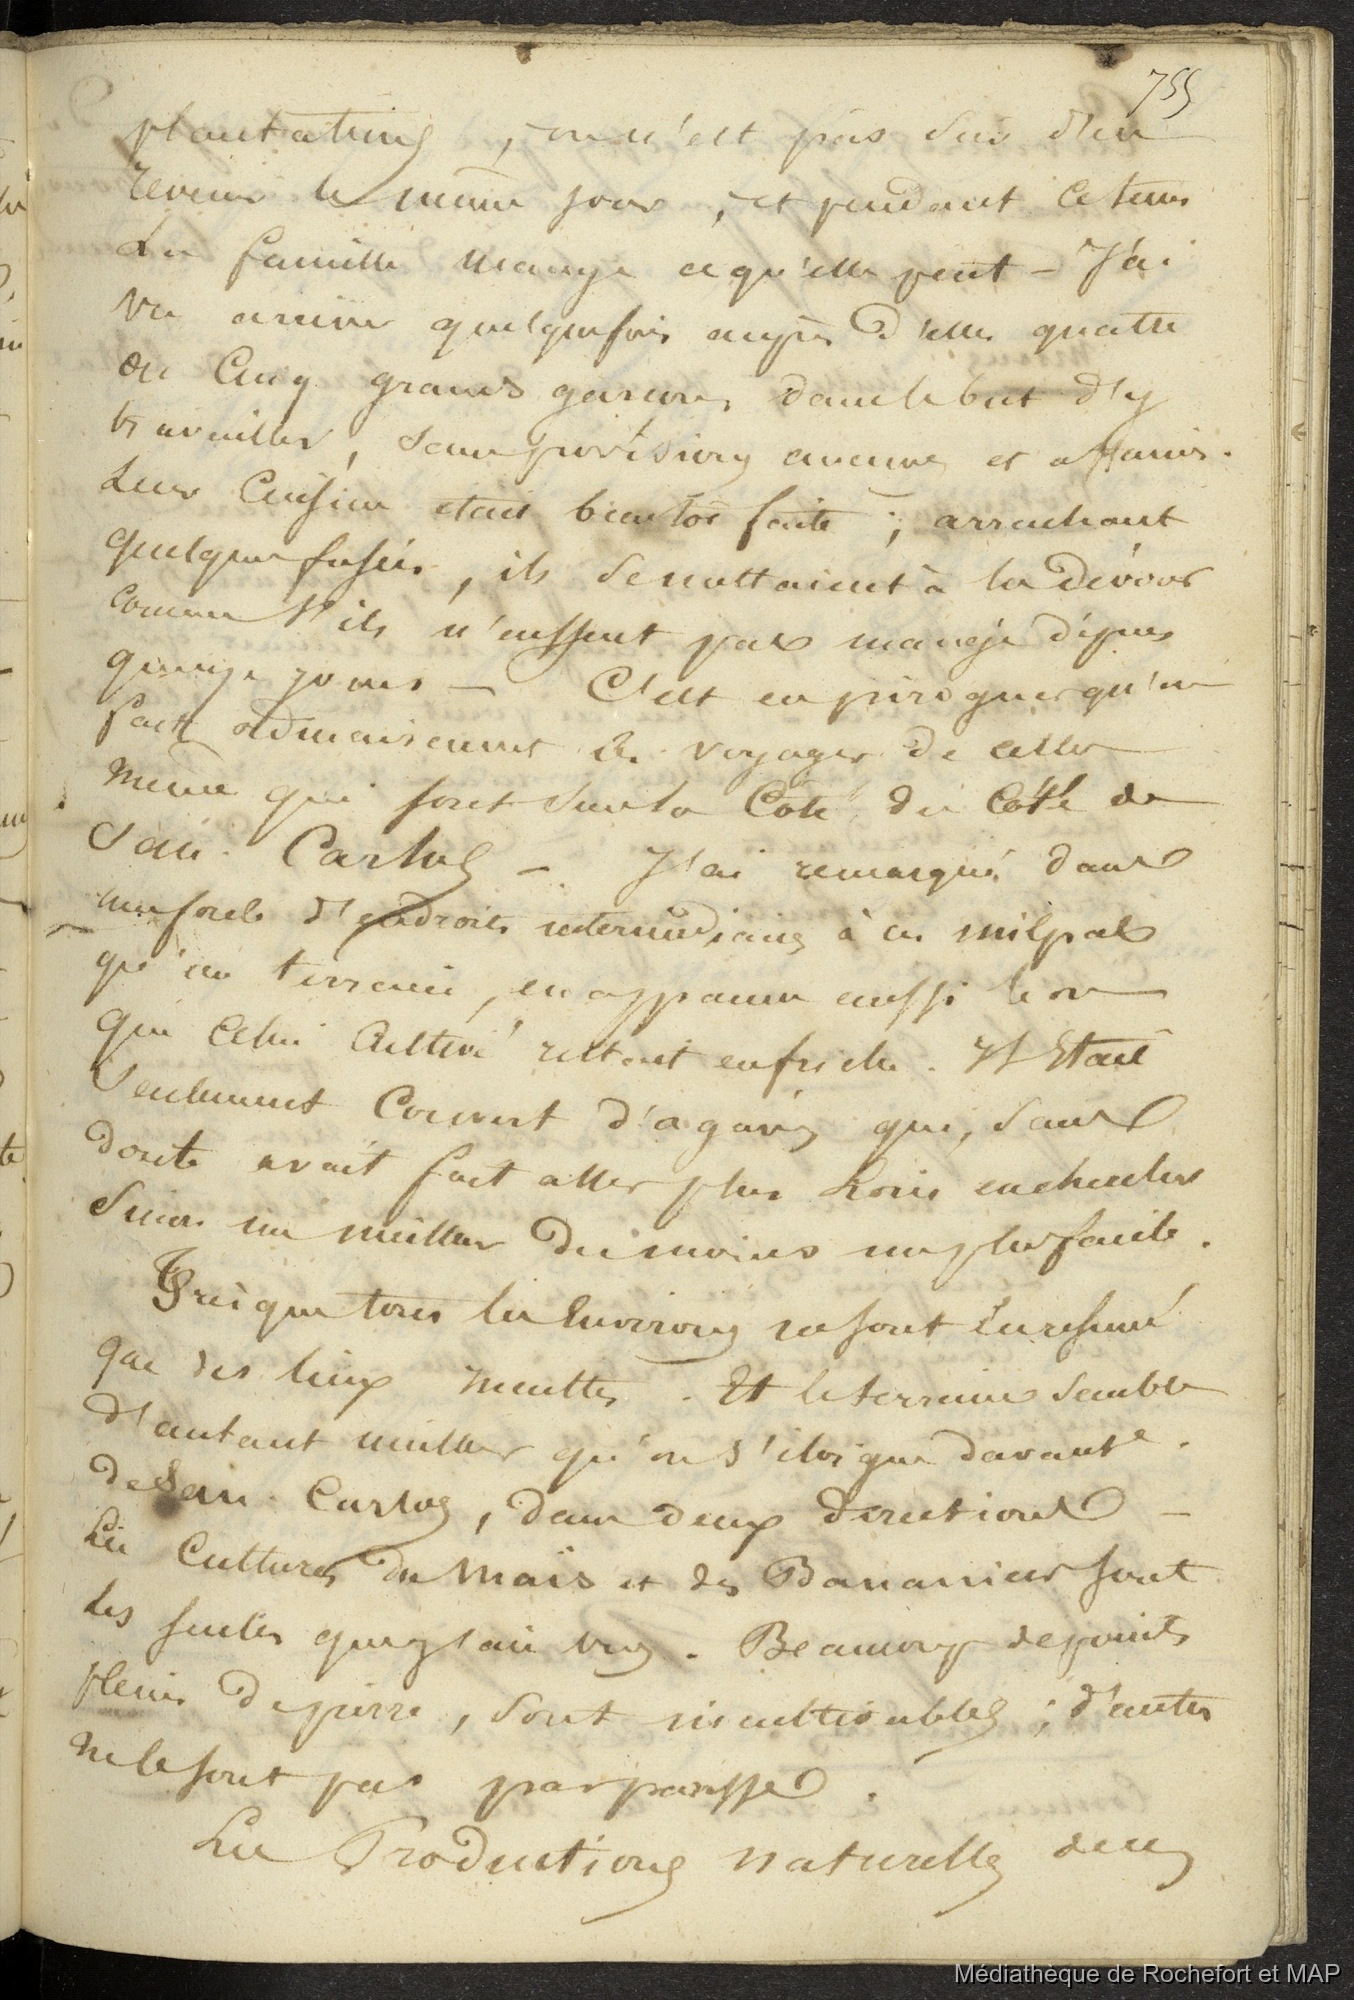 755
plantations, on n'est pas sur d'en
revenir le même jour, et pendant ce tems
la famille mange ce qu'elle peut - J'ai
vu arriver quelquefois auprès d'elles quatre
ou Cinq grands garcons, dans le but d'y
travailler, sans provisions aucunes et affamés.
Leur Cuisine etait bientôt faite; arrachant
quelques fusées, ils se mettaient à les dévorer
comme s'ils n'eussent pas mangé depuis
quinze jours - C'est en pirogues qu'on
fait ordinairement les voyages de celles
même qui sont sur la Côte du Côté de
San. Carlos -. J'ai remarqué dans
une foule d'endroits intermédiaires à ces milpas
qu'un terrain, en apparence aussi bon
que Celui Cultivé restait enfriche. Il Etait
Seulement Couvert d'agavés qui, sans
doute avait fait aller plus Loin en chercher
Sinon un meilleur du moins un plus facile.
Presque tous les Environs ne sont En résumé
que des lieux incultes. Et le terrain semble
d'autant meilleur qu'on s'éloigne davante.
de San. Carlos, dans deux directions -
Les Cultures du Maïs et des Bananiers sont
les seules que j'ai vus. Beaucoup de points
pleins de pierre, sont incultivables; d'autres
ne le sont pas par paresse.
Les Productions naturelles des
Médiathèque de Rochefort et MAP